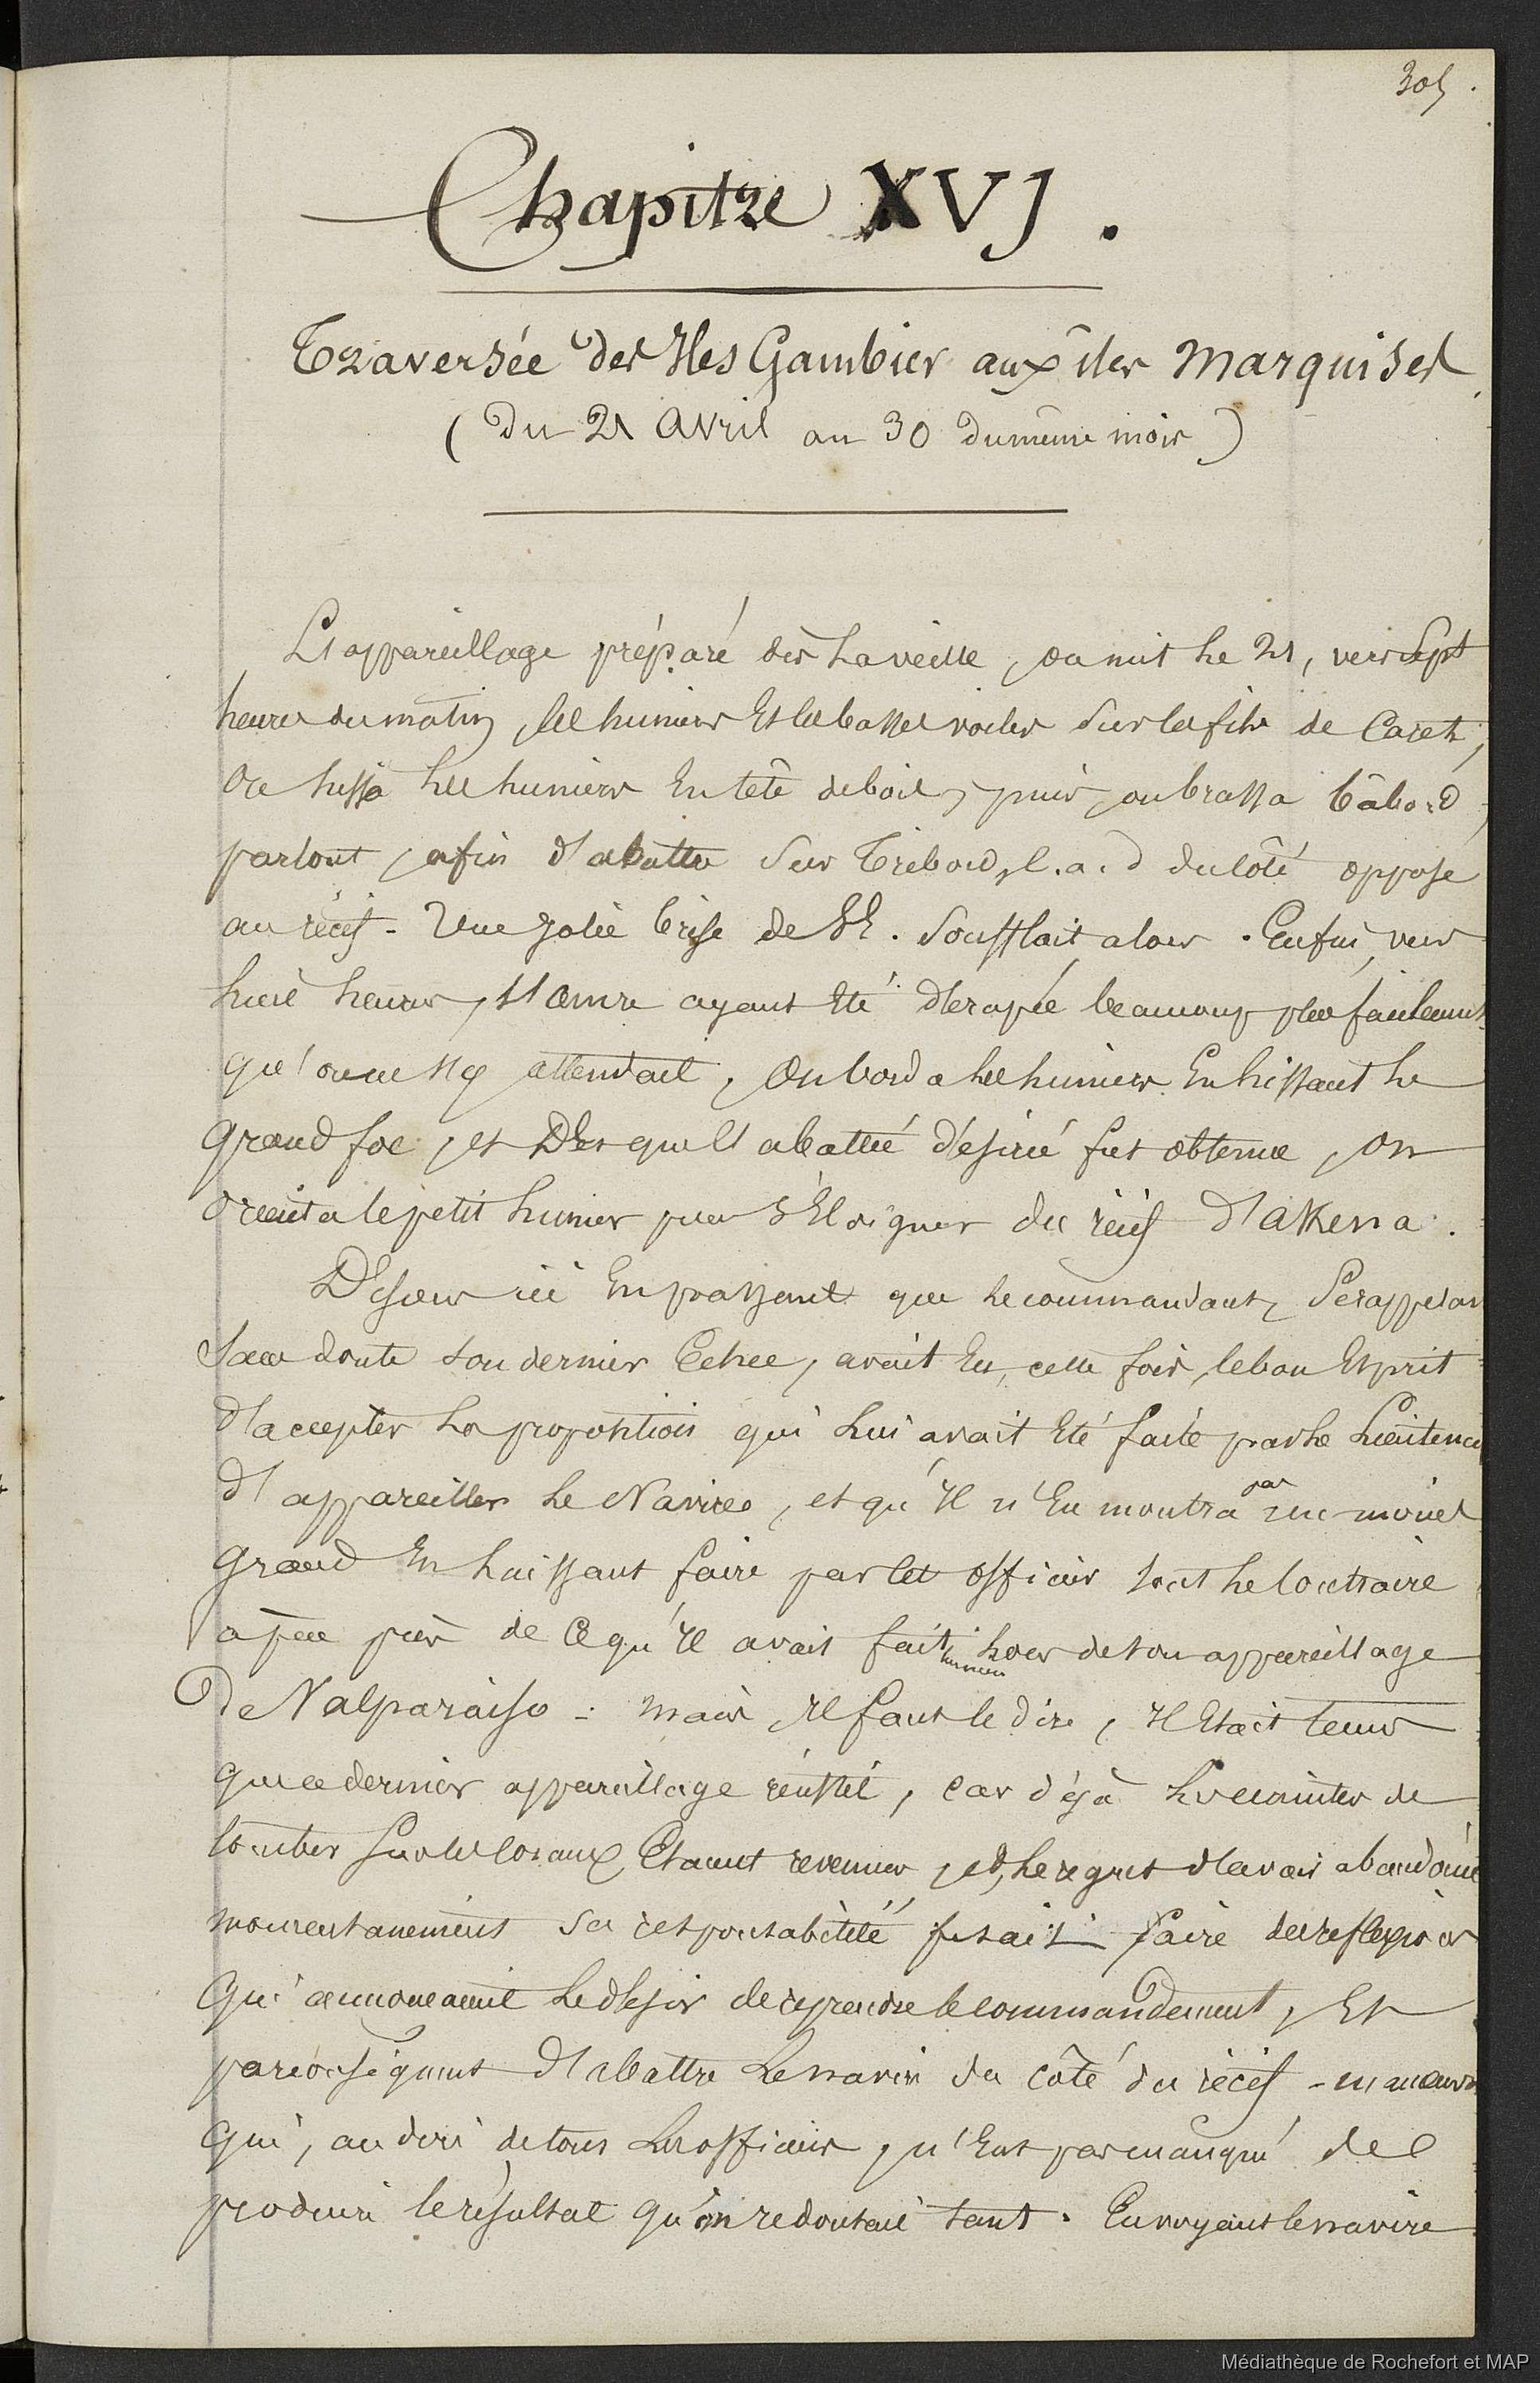 305.
Chapitre XVJ.
Traversée des Iles Gambier aux îles Marquises
(Du 21 avril au 30 du même mois)
L'appareillage préparé dès la veille, on mit le 21, vers sept
heures du matin, les huniers et les basses voiles sur les fils de Caret,
on hissa les huniers en tête de bois, puis, on brassa bâbord
partout, afin d'abattre sur Tribord, c.a.d du côté opposé
au récif - Une jolie brise de SE. soufflait alors. Enfin, vers
huit heures, l'ancre ayant été dérapée beaucoup plus facilement
qu'on ne s'y attendait, on borda les huniers en hissant le
grand foc, et Dès que l'abattée désirée fut obtenue, on
orienta le petit hunier pour s'Eloigner du récif d'akena.
Disons ici en passant que le commandant, se rappelant
sans doute son dernier Echec, avait Eu, cette fois, le bon Esprit
d'accepter la proposition qui lui avait Eté faite par le Lieutenant
d'appareiller le Navire, et qu'il n'En montra pas une moins
grand En laissant faire par cet officier tout le contraire
à peu près de ce qu'il avait fait lors de son appareillage
De Valparaiso - mais, il faut le dire, il Etait tems
que ce dernier appareillage réussit, car déjà les craintes de
tomber sur les coraux Etaient revenues, et, le regret d'avoir abandonné
momentanément sa responsabilité faisait faire des reflexions
qui annonçaient le désir de reprendre le commandement, Et
par conséquent d'abattre le navire du côté du récif - manœuvre
qui, au dire de tous les officiers, n'Eut pas manqué de
produire le résultat qu'on redoutait tant. En voyant le navire
Médiathèque de Rochefort et MAP